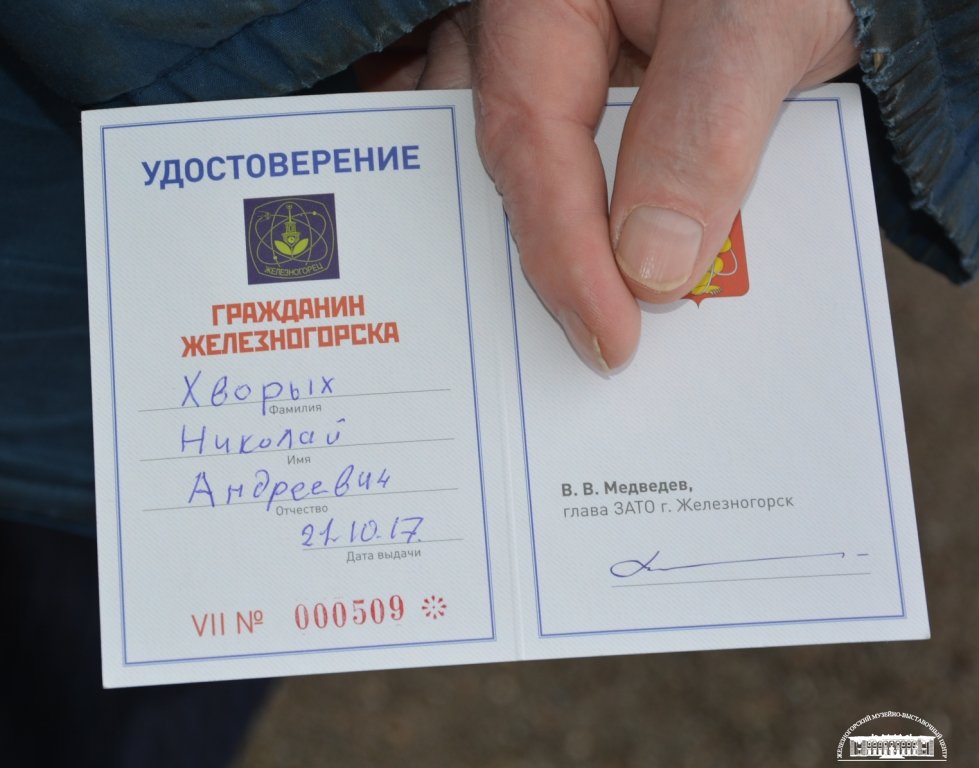 УДОСТОВЕРЕНИЕ
ЖЕЛЕЗНОГОРЕЦ
ГРАЖДАНИН
ЖЕЛЕЗНОГОРСКА
Хворых
Фамилия
Николай
Имя
Андреевич
Отчество
21.10.17.
Дата выдачи
VII № 000509
В. В. Медведев,
глава ЗАТО г. Железногорск
ЖЕЛЕЗНОГОРСКИЙ МУЗЕЙНО-ВЫСТАВОЧНЫЙ ЦЕНТР